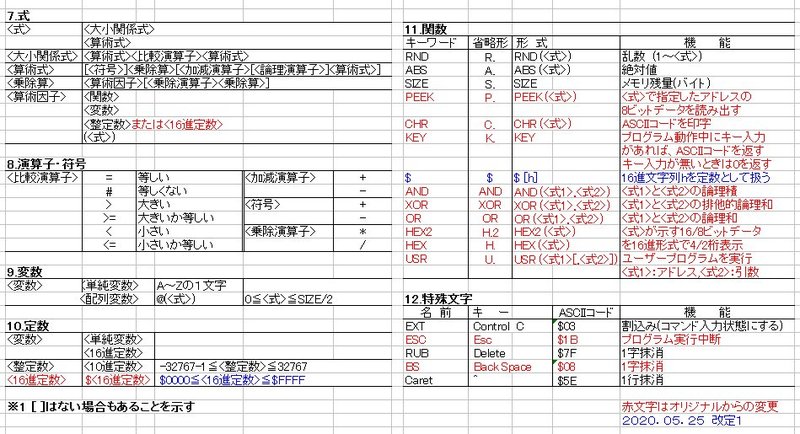 7.式
<式> <大小関係式>
<算術式>
<大小関係式> <算術式><比較演算子><算術式>
<算術式> [<符号>]<乗除算>[<加減演算子>[<論理演算子>]<算術式>]
<乗除算> <算術因子>[<乗除演算子><乗除算>]
<算術因子> <関数>
<変数>
<整定数>または<16進定数>
(<式>)
8.演算子・符号
<比較演算子> = 等しい <加減演算子> +
# 等しくない -
> 大きい <符号> +
>= 大きいか等しい -
< 小さい <乗除演算子> *
<= 小さいか等しい /
9.変数
<変数> <単純変数> A～Zの1文字
<配列変数> @(<式>) 0≦<式>≦SIZE/2
10.定数
<変数> <単純変数>
<16進定数>
<整定数> <10進定数> -32767-1≦<整定数>≦32767
<16進定数> $<16進定数> $0000≦<16進定数>≦$FFFF
※1 [ ]はない場合もあることを示す
11.関数
キーワード 省略形 形 式 機 能
RND R. RND(<式>) 乱数 (1～<式>)
ABS A. ABS(<式>) 絶対値
SIZE S. SIZE メモリ残量(バイト)
PEEK P. PEEK(<式>) <式>で指定したアドレスの
8ビットデータを読み出す
CHR C. CHR(<式>) ASCIIコードを印字
KEY K. KEY プログラム動作中にキー入力
があれば、ASCIIコードを返す
キー入力が無いときは0を返す
$ $ $[h] 16進文字列hを定数として扱う
AND AND AND(<式1>,<式2>) <式1>と<式2>の論理積
XOR XOR XOR(<式1>,<式2>) <式1>と<式2>の排他的論理和
OR OR OR(<式1>,<式2>) <式1>と<式2>の論理和
HEX2 H.2 HEX2(<式>) <式>が示す16/8ビットデータ
HEX H. HEX(<式>) を16進形式で4/2桁表示
USR U. USR(<式1>[,<式2>]) ユーザープログラムを実行
<式1>:アドレス,<式2>:引数
12.特殊文字
名 前 キ ー ASCIIコード 機 能
EXT Control C $03 割込み(コマンド入力状態にする)
ESC Esc $1B プログラム実行中断
RUB Delete $7F 1字抹消
BS Back Space $08 1字抹消
Caret ^ $5E 1行抹消
赤文字はオリジナルからの変更
2020.05.25 改定1